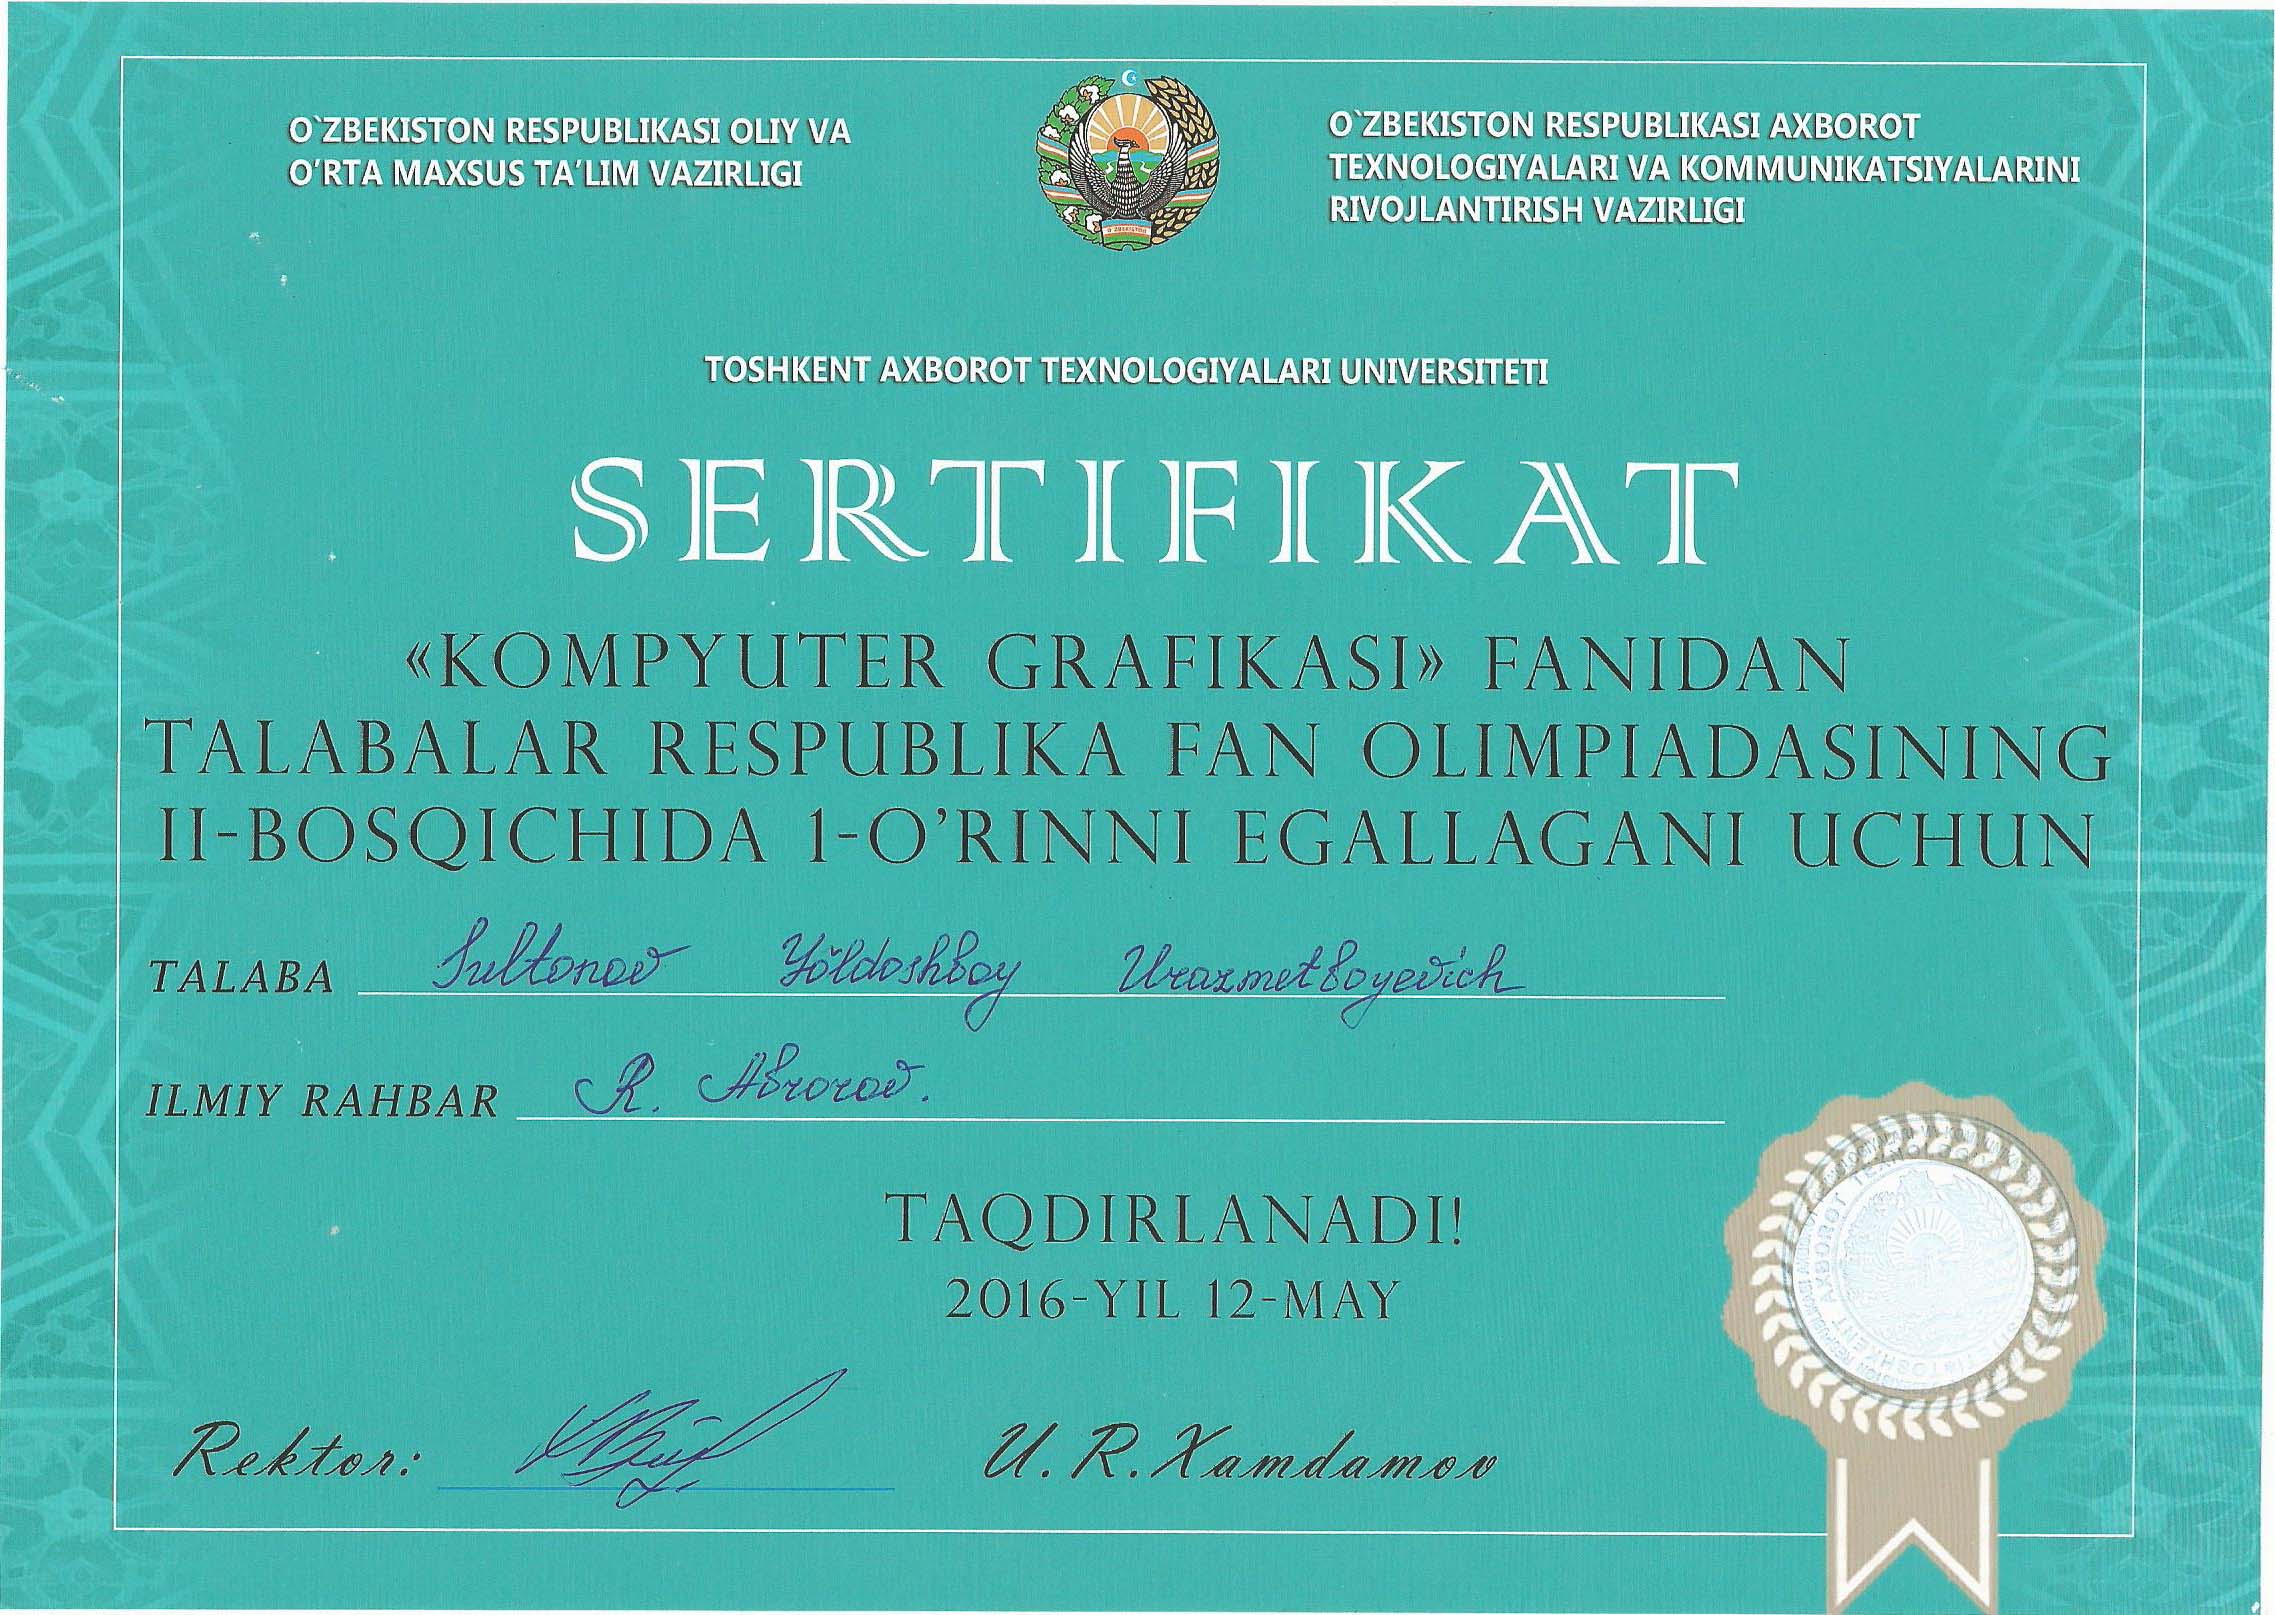 O`ZBEKISTON RESPUBLIKASI OLIY VA
O'RTA MAXSUS TA'LIM VAZIRLIGI
O`ZBEKISTON RESPUBLIKASI AXBOROT
TEXNOLOGIYALARI VA KOMMUNIKATSIYALARINI
RIVOJLANTIRISH VAZIRLIGI
O'ZBEKISTON
TOSHKENT AXBOROT TEXNOLOGIYALARI UNIVERSITETI
SERTIFIKAT
«KOMPYUTER GRAFIKASI» FANIDAN
TALABALAR RESPUBLIKA FAN OLIMPIADASINING
II-BOSQICHIDA 1-O'RINNI EGALLAGANI UCHUN
TALABA Sultonov Yŏldoshboy Urazmetboyevich
ILMIY RAHBAR R. Abrorov.
TAQDIRLANADI!
2016-YIL 12-MAY
Rektor: U. R. Xamdamov
TOSHKENT AXBOROT